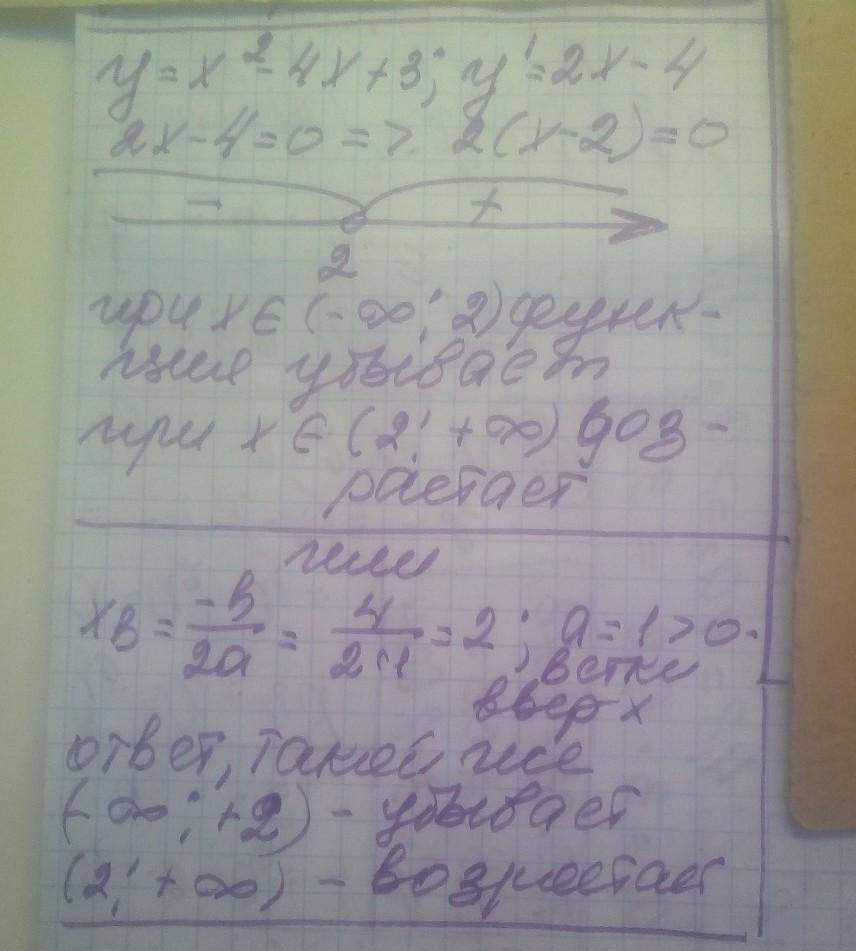 y = x² - 4x + 3; y' = 2x - 4
2x - 4 = 0 => 2(x - 2) = 0
- +
2
при x ∈ (-∞; 2) функ-
ция убывает
при x ∈ (2; +∞) воз-
растает
или
xв = -в/2a = 4/2·1 = 2; a = 1 > 0.
ветки
вверх
ответ, такой же
(-∞; +2) - убывает
(2; +∞) - возрастает